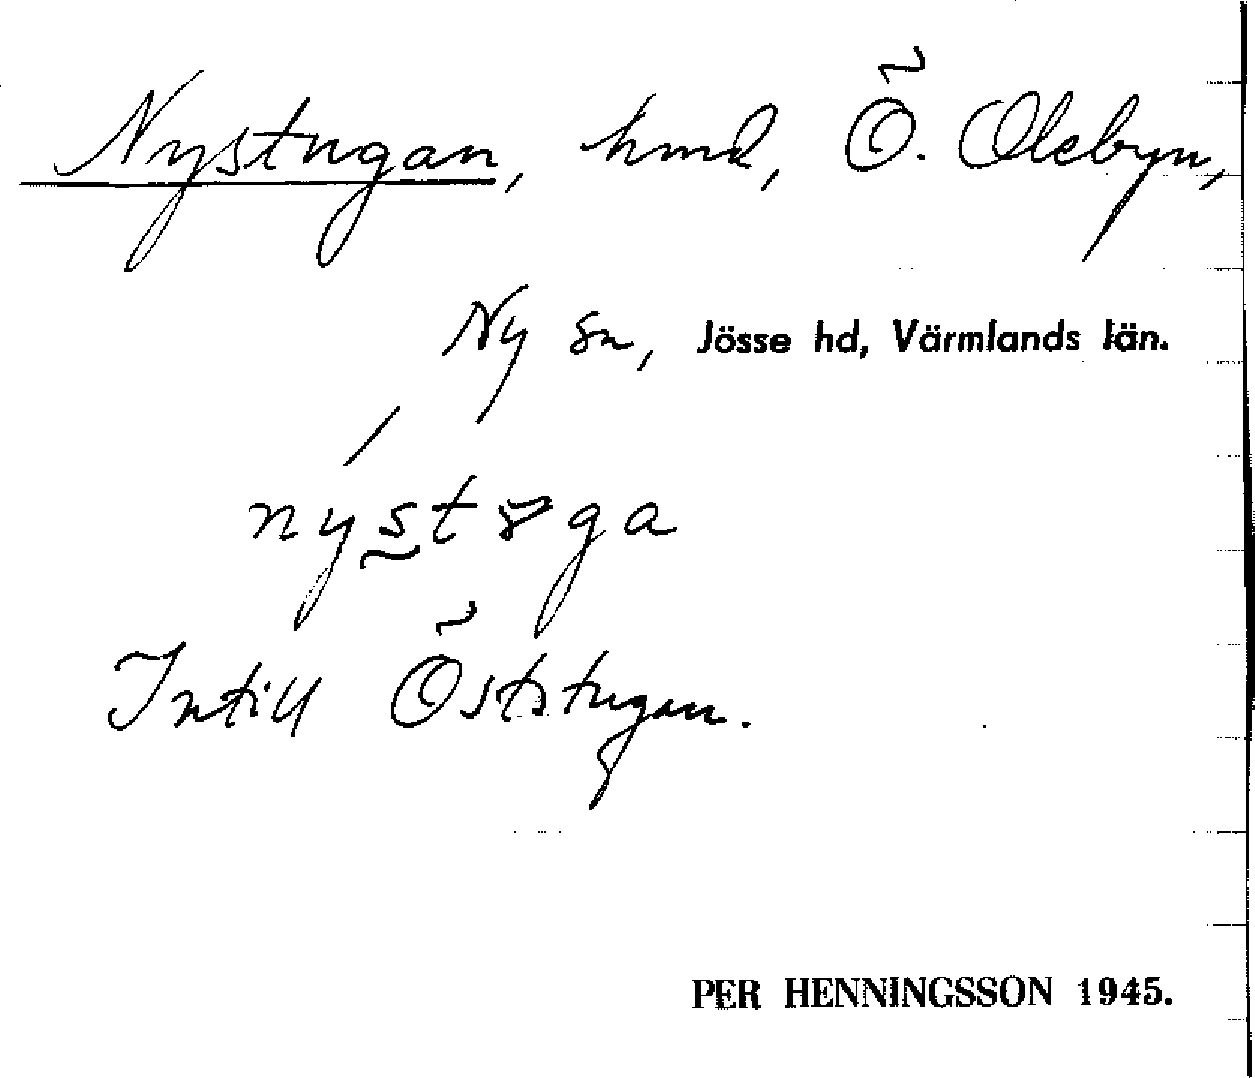 Nystugan, hmd, Ö. Olebyn,
Ny sn, Jösse hd, Värmlands län.
Intill Öststugan.
PER HENNINGSSON 1945.